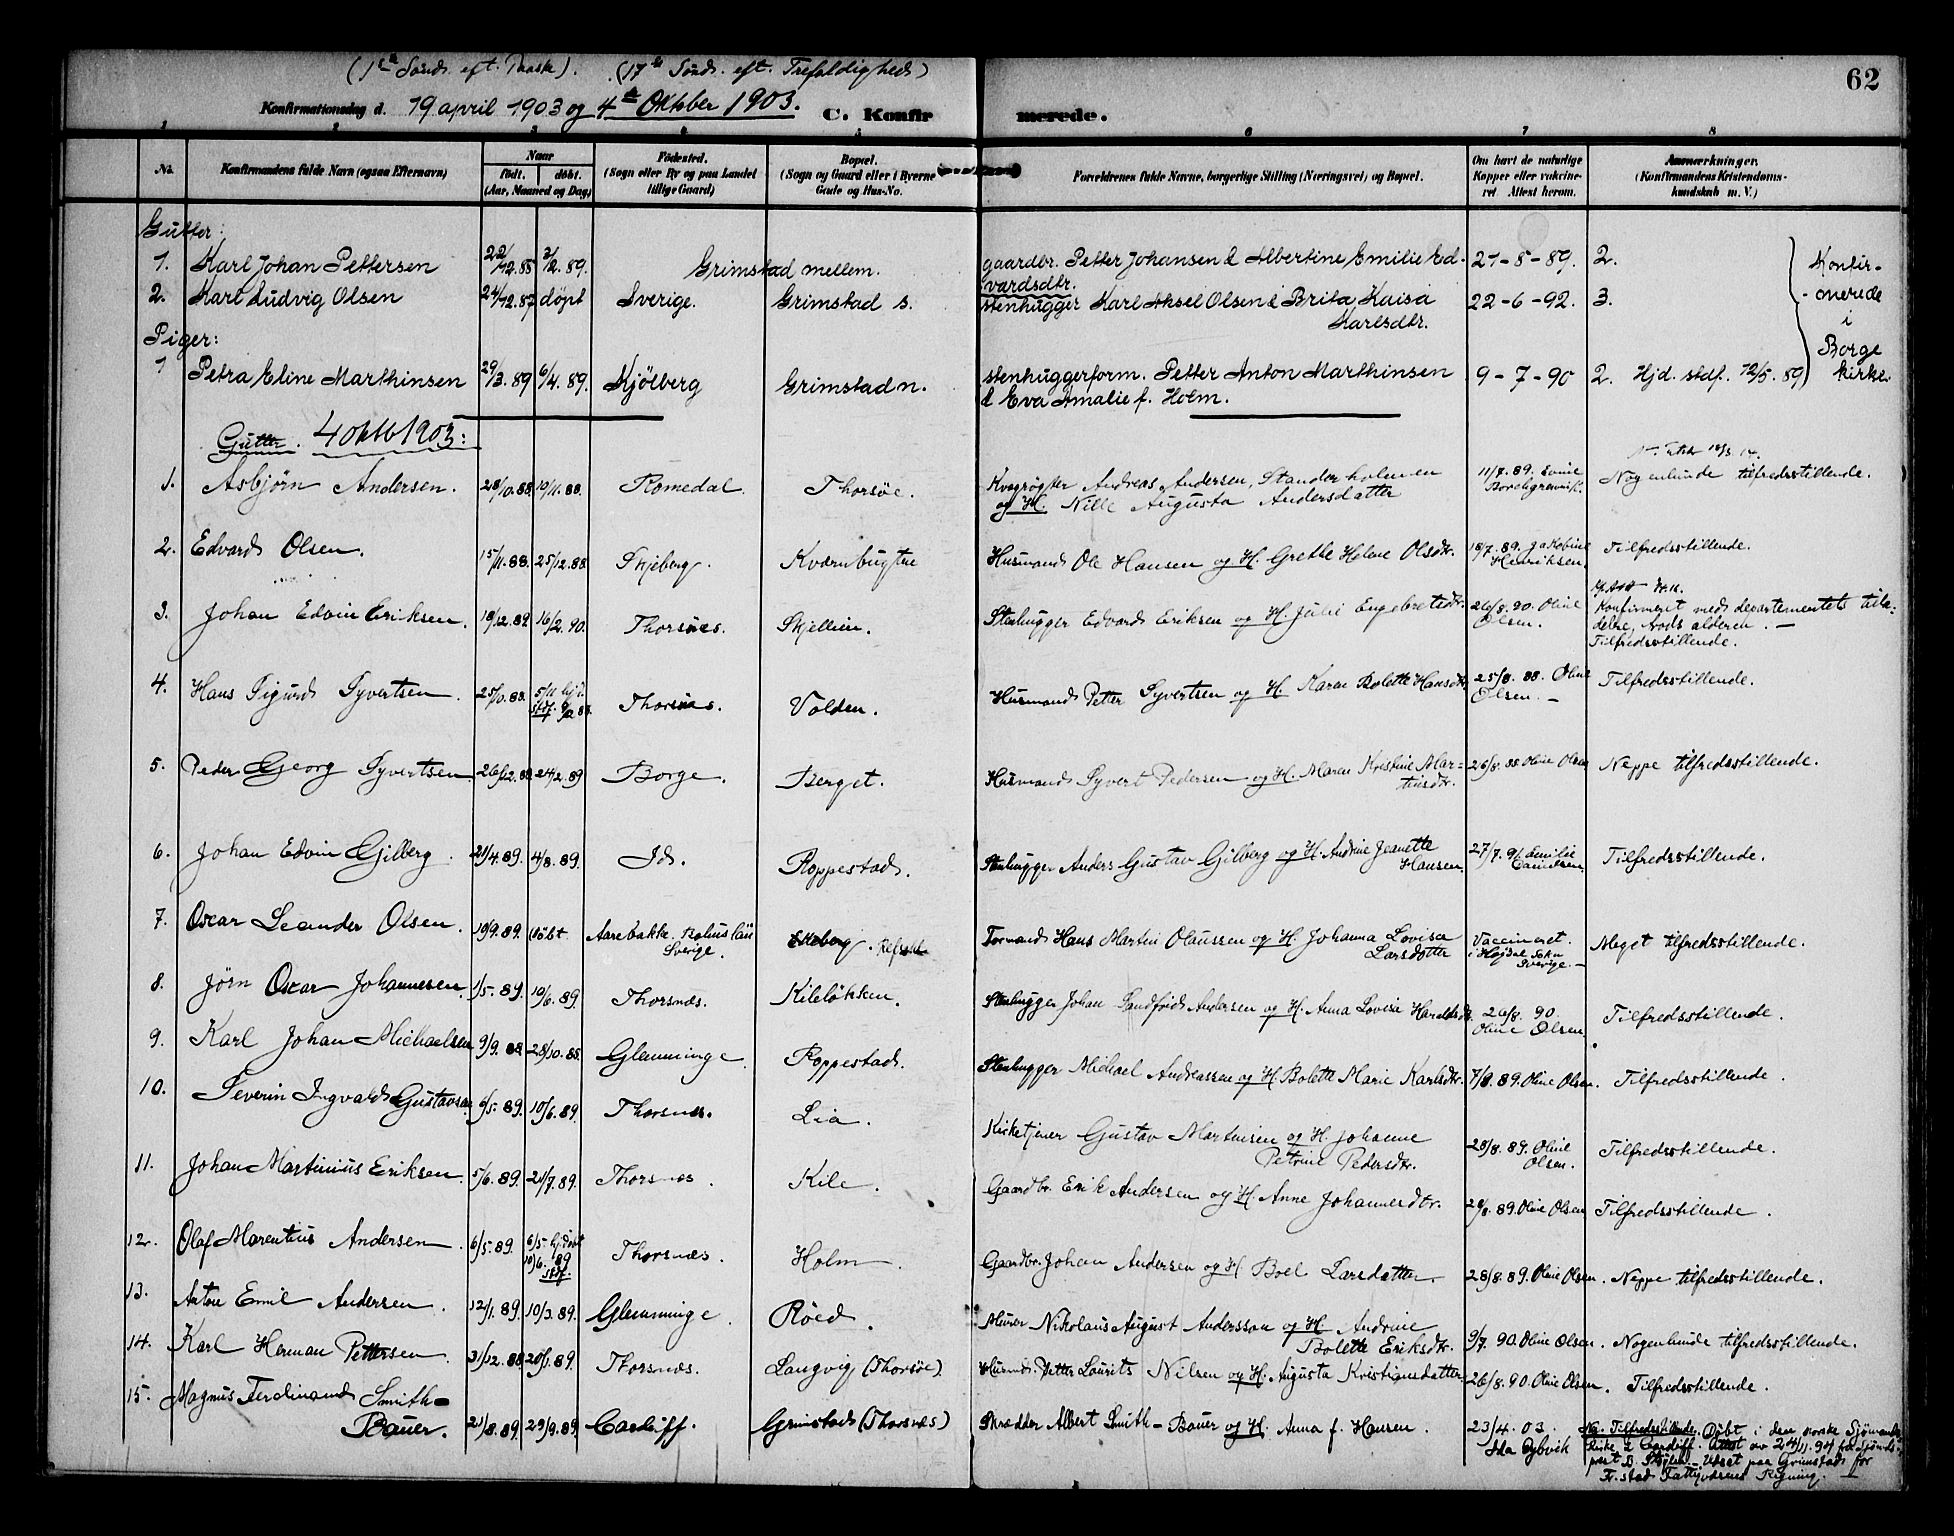 (1ste Sönd. eft. Paaske). (17de Sönd. eft. Trefoldigheds)
62
Konfirmationsdag d. 19 april 1903 og 4de Oktober 1903. C. Konfirmerede.
1 2 3 4 5 6 7 8
No. Konfirmandens fulde Navn (ogsaa Efternavn) Naar født. døbt. (Aar, Maaned og Dag) Fødested. (Sogn eller By og paa Landet tillige Gaard) Bopæl. (Sogn og Gaard eller i Byerne Gade og Hus-No. Forældrenes fulde Navne, borgerlige Stilling (Næringsvei) og Bopæl. Om havt de naturlige Kopper eller vaccineret Attest herom. Anmærkninger. (Konfirmandens Kristendomskundskab m. V.)
Gutter:
1. Karl Johan Pettersen 22/12.88 2/2.89. Grimstad mellem. gaardbr. Petter Johansen & Albertine Emilie Edvardsdtr. 21-8-89. 2.
2. Karl Ludvig Olsen 24/12.87 döpt Sverige. Grimstad s. stenhugger Karl Aksel Olsen & Brita Kaisa Karlsdtr. 22-6-92. 3.
Konfirmerede i Borge kirke.
Piger:
1 Petra Eline Marthinsen 29/3.89 6/4.89. Kjölberg Grimstad n. stenhuggerform. Petter Anton Marthinsen & Eva Amalie f. Holm. 9-7-90 2. Hjd. stdf. 12/5.89
Gutter. 4 oktb 1903:
1. Asbjørn Andersen. 28/10.88. 10/11.88. Romedal. Thorsöe. Kvægrøgter Andreas Andersen, og H. Nille Augusta Andersdatter 11/7.89. Nogenlunde tilfredsstillende.
2. Edvard Olsen. 15/11.88. 25/12.88. Skjeberg. Kværnbugten Husmand Ole Hansen og H. Grethe Helene Olsdtr. 18/7.89. Jakobine Henriksen. Tilfredsstillende.
3. Johan Edvin Eriksen. 18/12.89 16/2.90. Thorsnes. Skjellin. Stenhugger Edvard Eriksen og H. Julie Engebretsdtr. 26/8.90. Oline Olsen. Konfirmeret med departementets tilladelse, trods alderen. — Tilfredsstillende.
4. Hans Sigurd Syvertsen. 25/10.88. 5/11 hjd. stdf. Thorsnes. Volden. Husmand Petter Syvertsen og H. Karen Bolette Hansdtr. 25/8.88. Oline Olsen. — Tilfredsstillende.
5. Peder Georg Syvertsen 26/12.88 24/2.89 Borge. Berget. Husmand Syvert Pedersen og H. Maren Kristine Martinsdtr. 26/8.88 Oline Olsen Neppe tilfredsstillende.
6. Johan Edvin Gilberg. 21/4.89. 4/8.89. Id. Roppestad. Stenhugger Anders Gustav Gilberg og H. Andrine Jeanette Hansen. 27/7.91 Emilie Tilfredsstillende.
7. Oscar Leander Olsen. 19/9.89. döbt Aarebakke. Bohuslän Sverige. Formand Hans Martin Olaussen og H. Johanna Lovisa Larsdatter Vaccineret. i Sverige. — Meget tilfredsstillende.
8. Jörn Oscar Johannesen. 1/5.89. 10/6.89. Thorsnæs. Kileløkken. Stenhugger Johan Sandfrid Andersen og H. Anna Lovise 26/8.90. Oline Olsen Tilfredsstillende.
9. Karl Johan Michaelsen 9/9.88 28/10.88. Glemminge. Roppestad. Stenhugger Michael Andreassen og H. Bolette Marie Karlsdtr. 7/8.89. Oline Olsen. Tilfredsstillende.
10. Severin Ingvald Gustavsen 6/5.89. 10/6.89. Thorsnes. Lia. Kirketjener Gustav Martinsen og H. Johanne Petrine Pedersdtr. 28/8.89. Oline Olsen. Tilfredsstillende.
11. Johan Martinius Eriksen. 5/6.89. 21/7.89. Thorsnes. Kile. Gaardbr. Erik Andersen og H. Anne Johannesdtr. 28/8.89. Oline Olsen Tilfredsstillende.
12. Olaf Marentius Andersen. 6/5.89. 6/5. hjdöbt 10/6.89 stdf. Thorsnæs. Holm. Gaardbr. Johan Andersen og H. Boel Larsdatter. 28/8.89. Oline Olsen. Neppe tilfredsstillende.
13. Anton Emil Andersen. 12/1.89. 10/3.89. Glemminge. Röed. Murer Nikolaus August Anderssen og H. Andrine Bolette Eriksdtr. 9/7.90. Oline Olsen. Nogenlunde tilfredsstillende.
14. Karl Herman Pettersen. 31/12.88 20/1.89. Thorsnæs. Langvig (Thorsöe). Husmd. Petter Laurits Nilsen og H. Augusta Kristiansdatter. 26/8.90. Oline Olsen. Tilfredsstillende.
15. Magnus Ferdinand Smith-Bauer. 21/8.89. 29/9.89 Cardiff. Grimstad (Thorsnæs) Skrædder Albert Smith-Bauer og H. Anna f. Hansen. 23/4.03. Ida Ng. Tilfredsstillende. Döbt i den norske Sjömandskirke i Cardiff. Attest av 24/11.94 fra Sjömdsprest Udsat paa Grimstad for Fr.stad Fattigvæsens Regning.